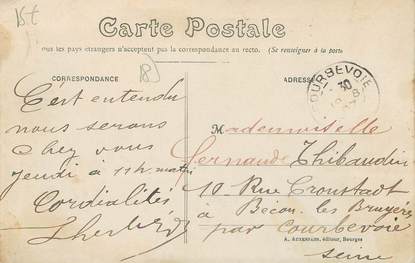 Carte Postale
ous les pays étrangers n'acceptent pas la correspondance au recto. (Se renseigner à la poste
CORRESPONDANCE
ADRESSE
COURBEVOIE
30
C'est entendu
nous serons
chez vous
jeudi à 11h matin
Cordialités
Mademoiselle
Fernande Thibaudin
10 Rue Cronstadt
à Bécon les Bruyères
par Courbevoie
Seine
A. AUXENFANS, éditeur, Bourges